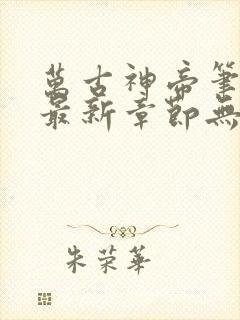 萬古神帝筆
最新章節無
朱荣華